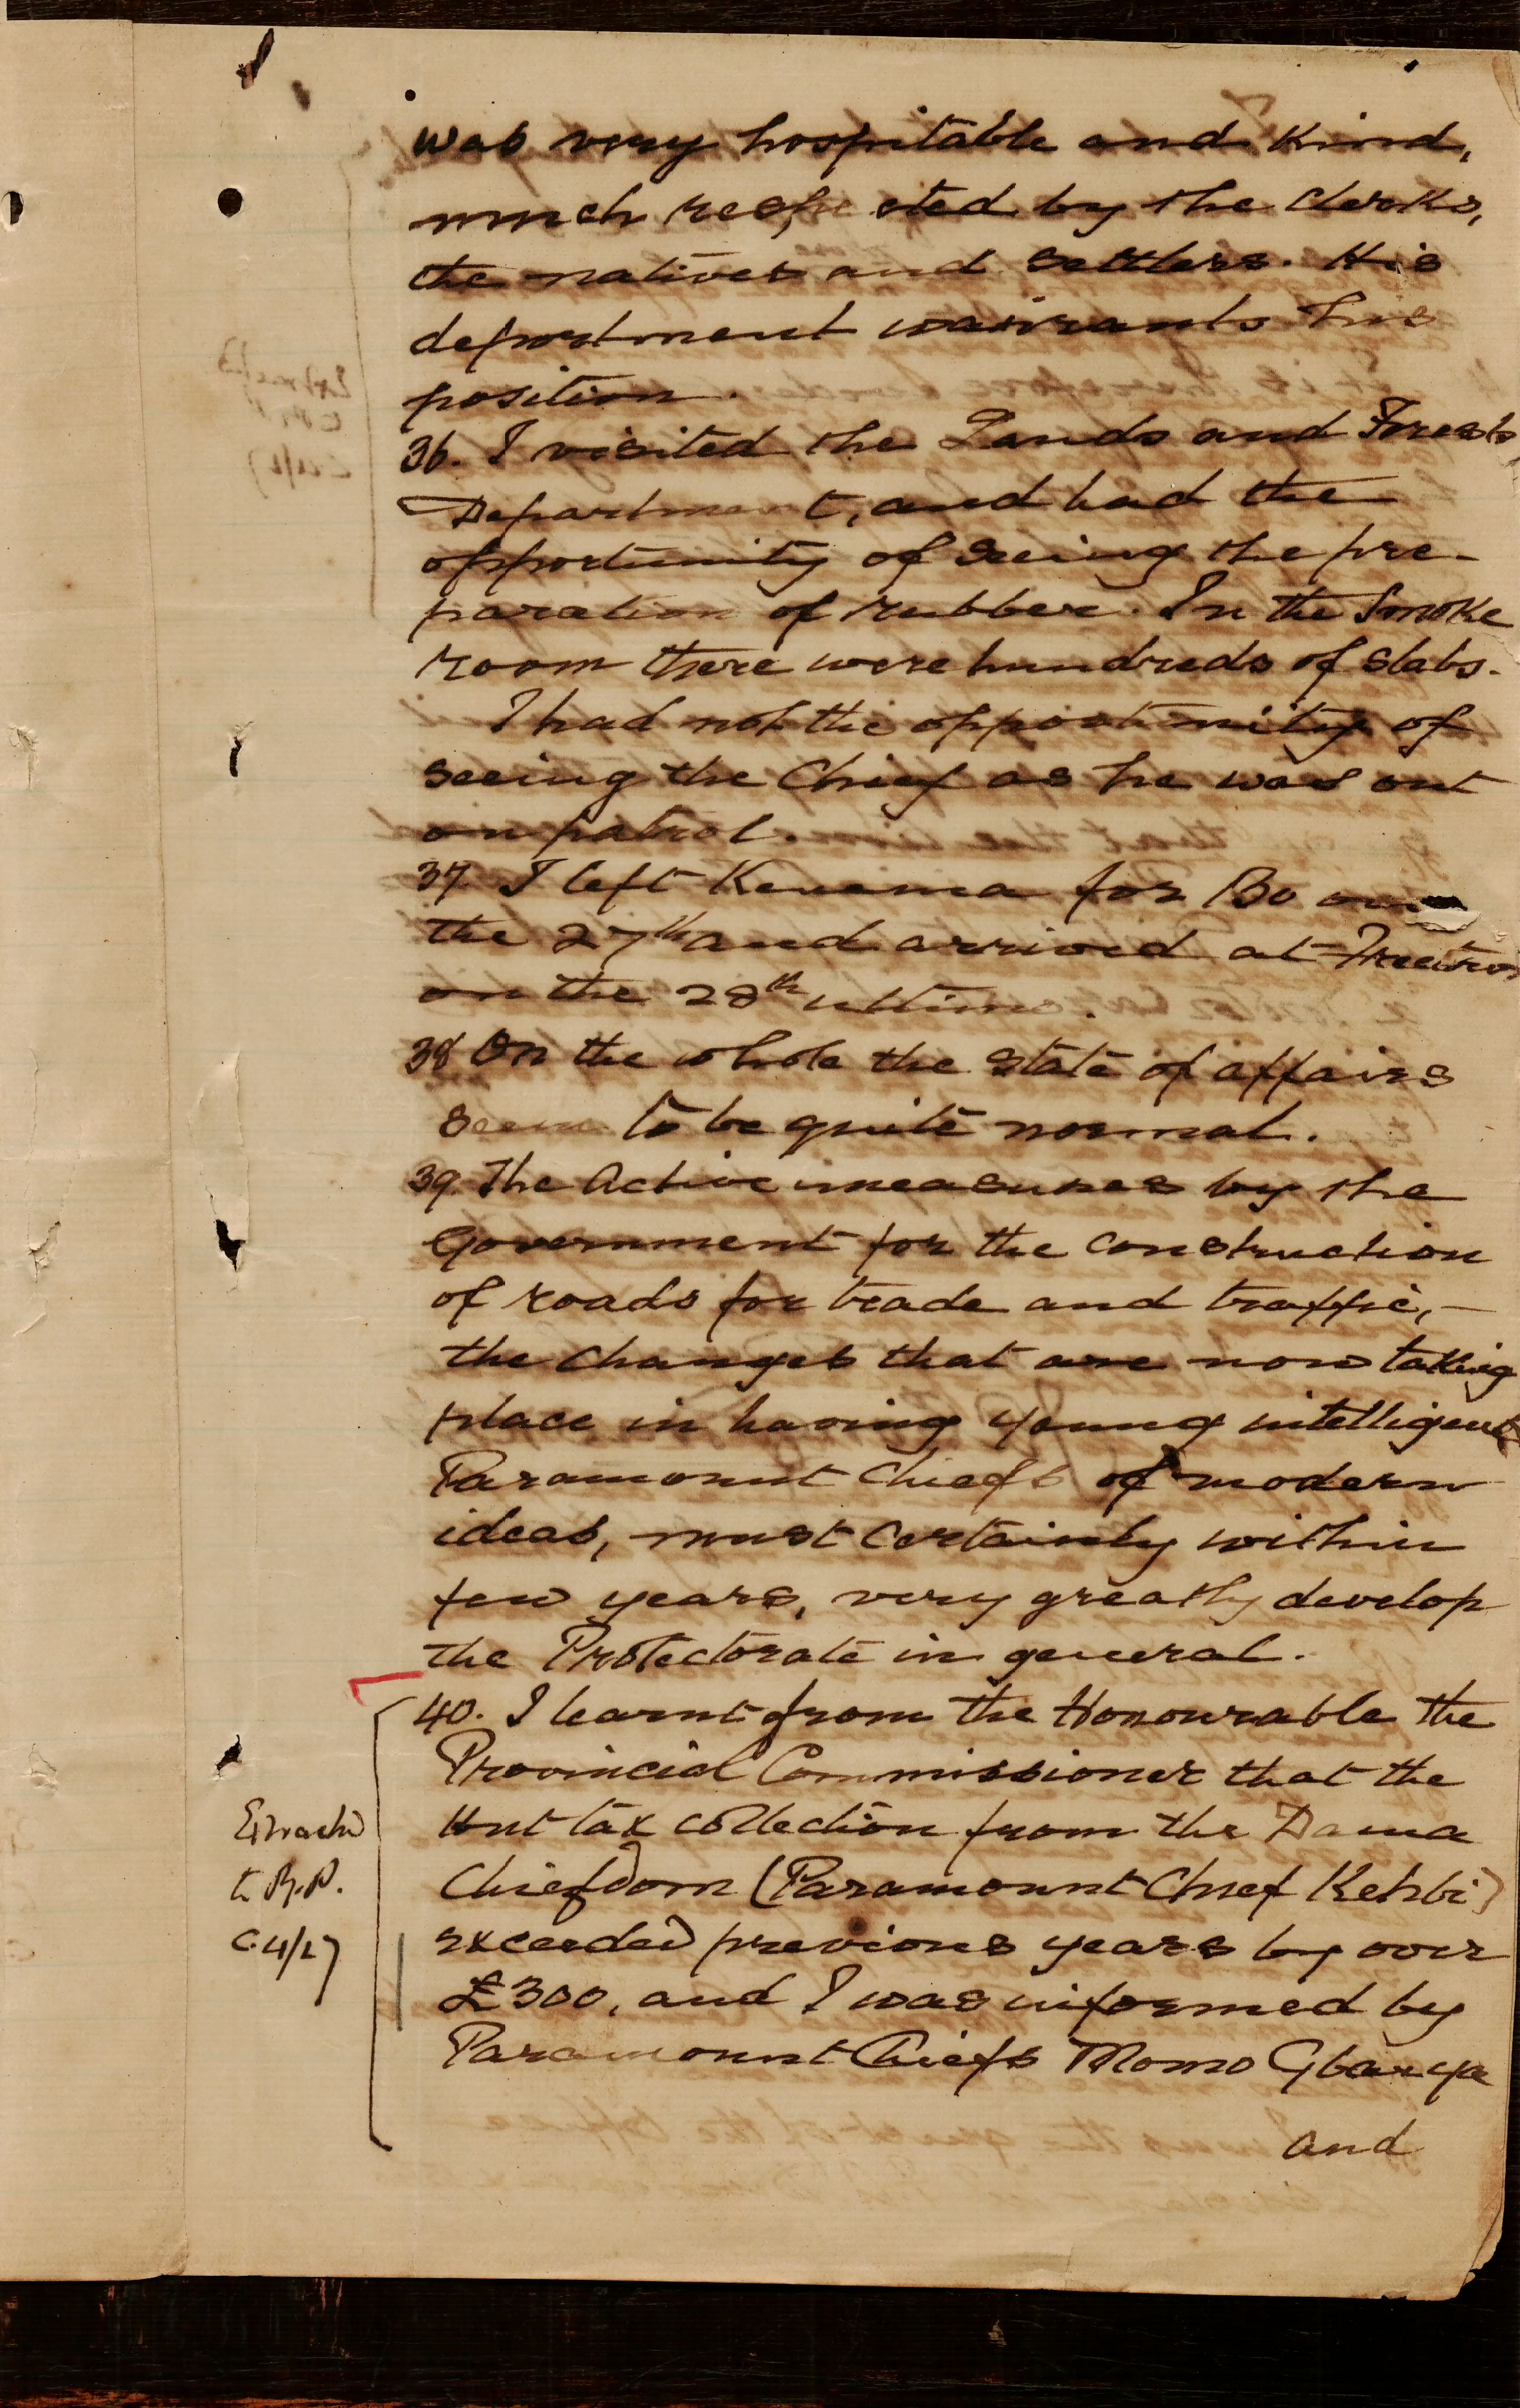 was very hospitable and kind,
much respected by the Clerks,
the natives and settlers. His
deportment warrants his
position.
36. I visited the Lands and Forests
Department, and had the
opportunity of seeing the pre-
paration of rubber. In the Smoke
room there were hundreds of slabs.
I had not the opportunity of
seeing the Chief as he was out
on patrol.
37. I left Kenema for Bo on
the 27th and arrived at Freetown
on the 28th ultimo.
38 On the whole the state of affairs
seem to be quite normal.
39. The Active measures by the
Government for the construction
of roads for trade and traffic, -
the changes that are now taking
place in having young intelligent
Paramount Chiefs of modern
ideas, must certainly within
few years, very greatly develop
the Protectorate in general.
40. I learnt from the Honourable the
Provincial Commissioner that the
Hut tax collection from the Dama
Chiefdom (Paramount Chief Kehbi)
exceeded previous years by over
£300, and I was informed by
Paramount Chiefs Momo Gbanya
and